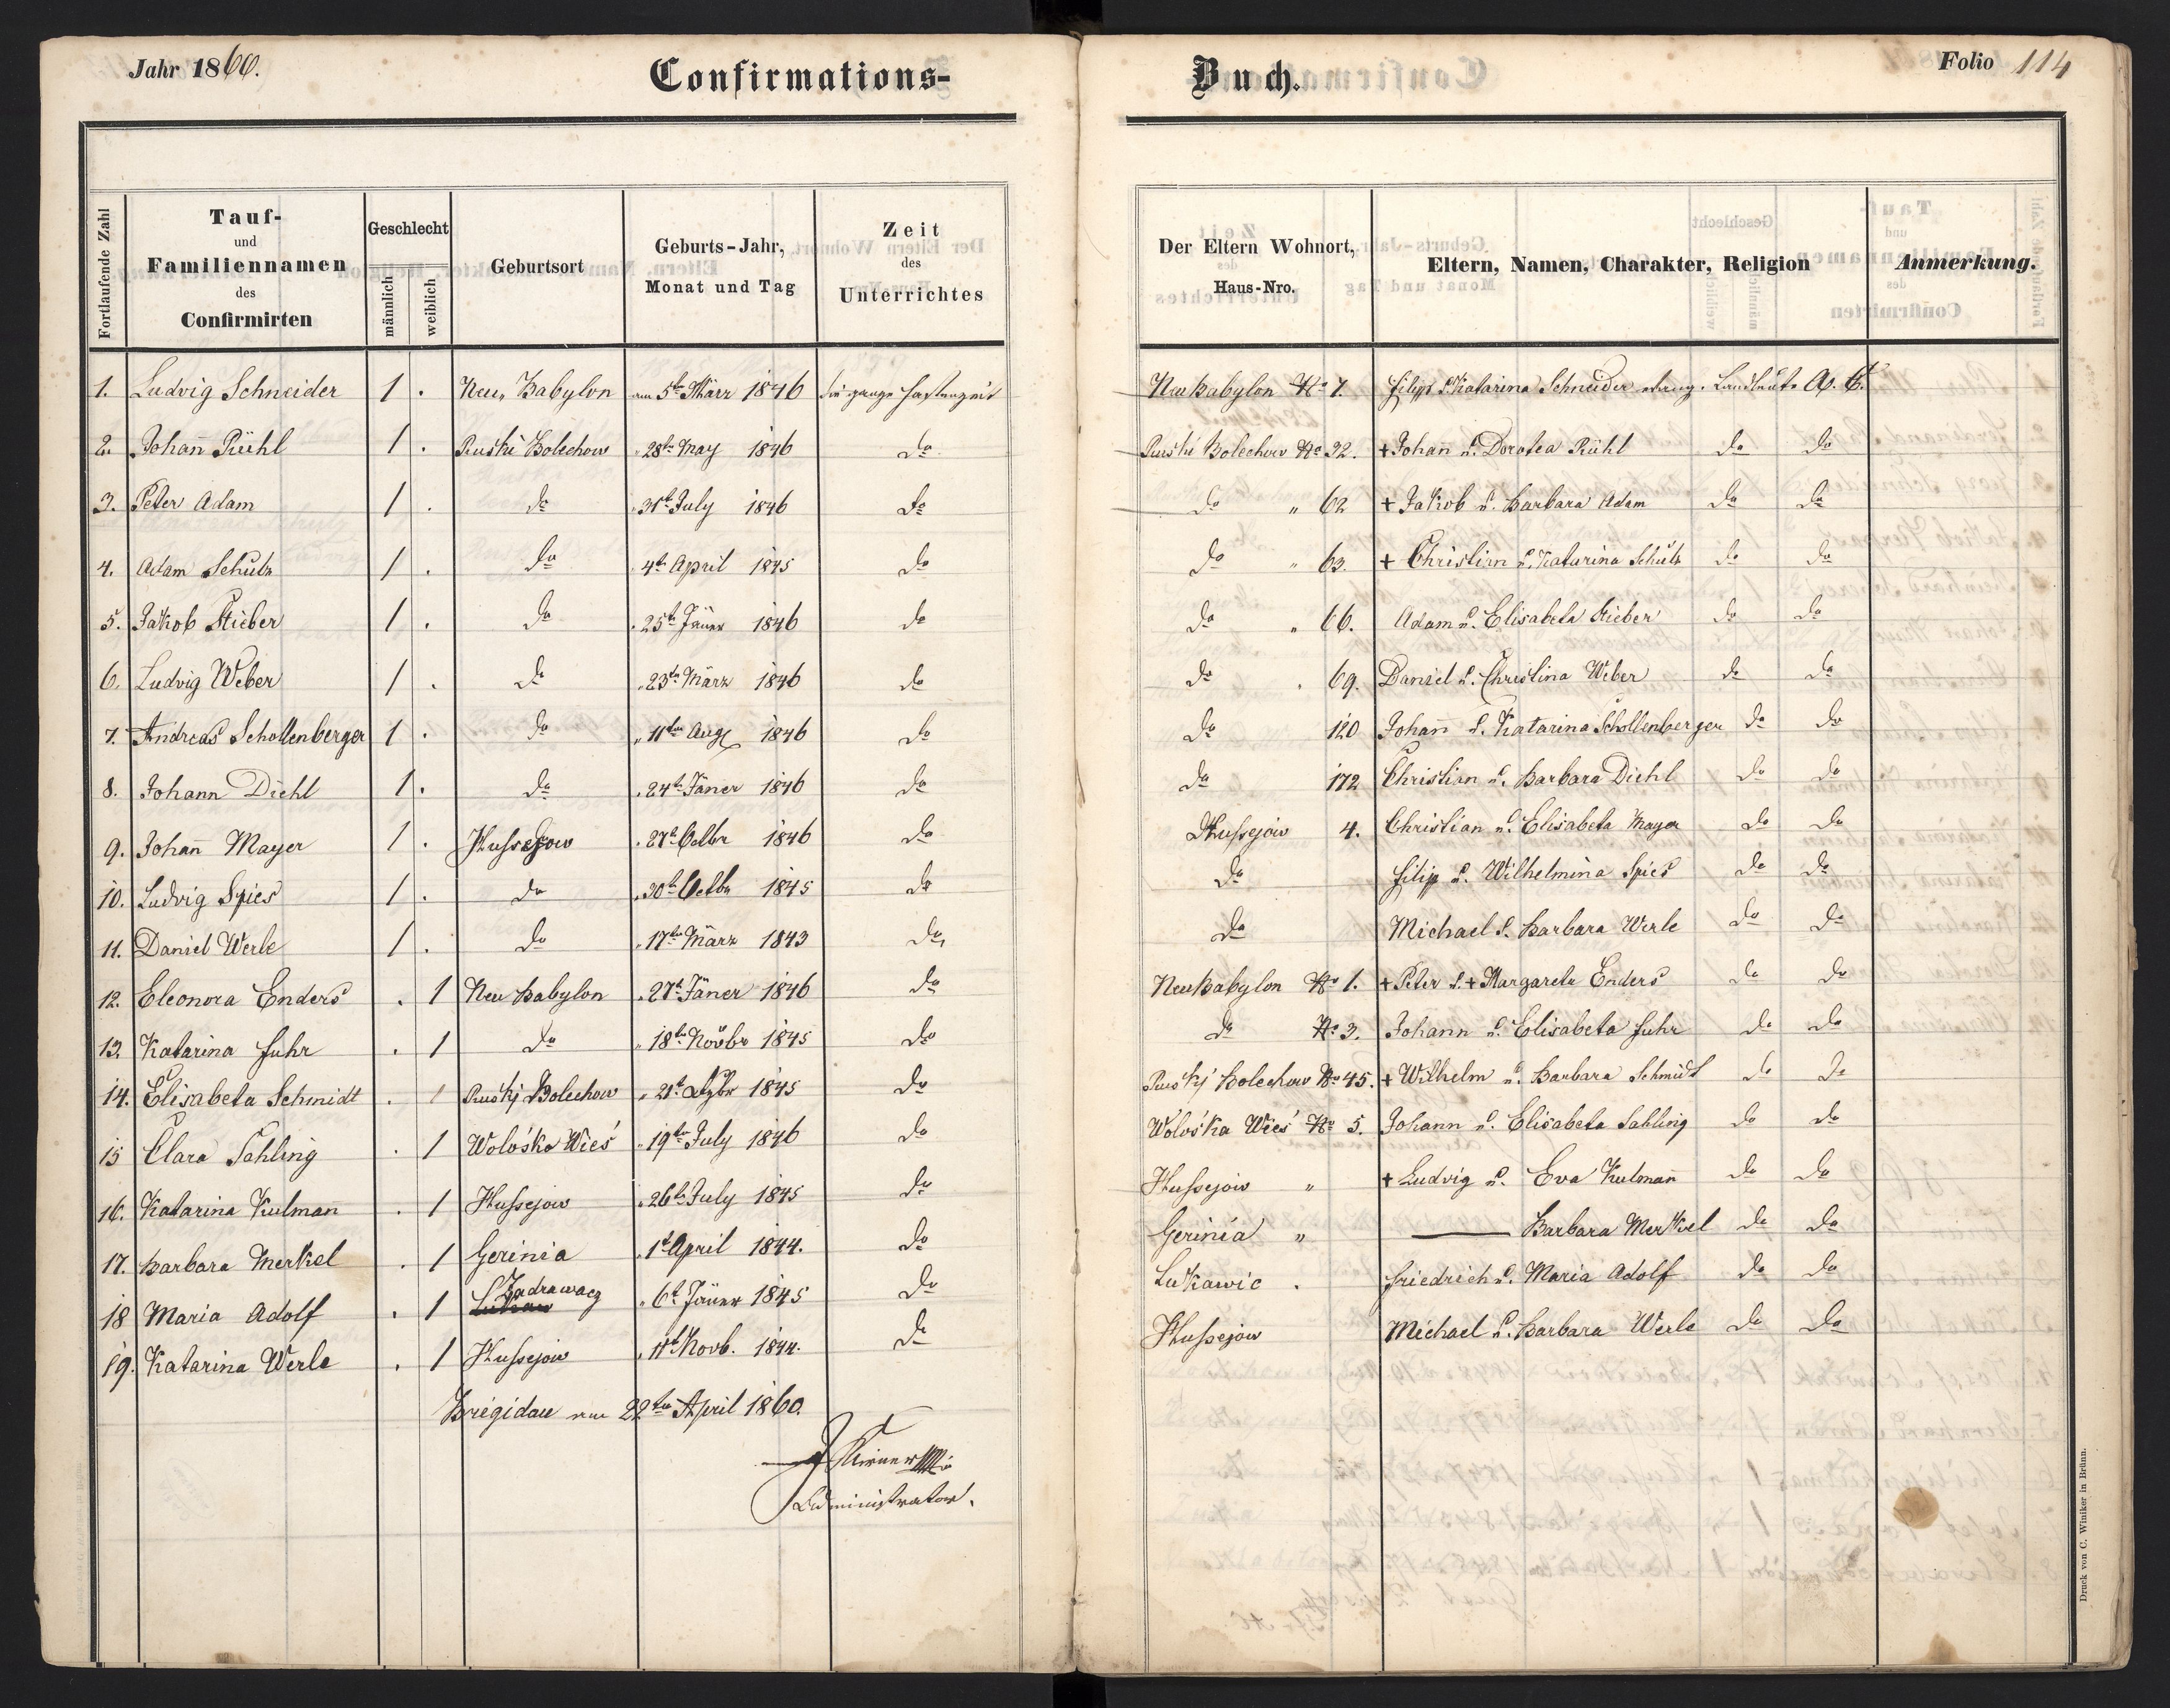 Jahr 1860.
Confirmations-
Buch.
Folio 114
Fortlaufende Zahl
Tauf-
und
Familiennamen
des
Confirmirten
Geschlecht
männlich
weiblich
Geburtsort
Geburts-Jahr,
Monat und Tag
Zeit
des
Unterrichtes
Der Eltern Wohnort,
Haus-Nro.
Eltern, Namen, Charakter, Religion
Anmerkung.
1. Ludvig Schneider 1 . Neu Babylon am 5ten März 1846 die ganze Fastenzeit Neu Babylon No 7. Filipp u. Katarina Schneider evang. Landleute A. C.
2. Johan̄ Rühl 1 . Ruski Bolechow " 28ten May 1846 do Ruski Bolechow No 32. + Johan̄ u. Dorotea Rühl do do
3. Peter Adam 1 . do " 31t July 1846 do do " 62 + Jakob u. Barbara Adam do do
4. Adam Schutz 1 . do " 4t April 1845 do do " 63. + Christian u. Katarina Schutz do do
5. Jakob Stieber 1 . do " 25t Jäner 1846 do do " 66. Adam u. Elisabeta Stieber do do
6. Ludvig Weber 1 . do " 23ten März 1846 do do " 69. Daniel u. Christina Weber do do
7. Andreas Schollenberger 1 . do " 11ten Aug 1846 do do 120 Johan̄ u. Katarina Schollenberger do do
8. Johann Diehl 1 . do " 24t Jäner 1846 do do 172 Christian u. Barbara Diehl do do
9. Johan̄ Mayer 1 . Hussejow " 27t Octbr 1846 do Hussejow 4. Christian u. Elisabeta Mayer do do
10. Ludvig Spies 1 . do " 30t Octbr 1845 do do Filip u. Wilhelmina Spies do do
11. Daniel Werle 1 . do " 17ten März 1843 do do Michael u. Barbara Werle do do
12. Eleonora Enders . 1 Neu Babylon " 27t Jäner 1846 do Neu Babylon No 1. + Peter u. + Margareta Enders do do
13. Katarina Fuhr . 1 do " 18ten Novbr 1845 do do No 3. Johann u. Elisabeta Fuhr do do
14. Elisabeta Schmidt . 1 Ruskj Bolechow " 21t 1845 do Ruskj Bolechow No 45. + Wilhelm u. Barbara Schmidt do do
15 Clara Sahling . 1 Wolóska Wieś " 19ten July 1846 do Wolóska Wieś No 5. Johann u. Elisabeta Sahling do do
16. Katarina Kulman̄ . 1 Hussejow " 26t July 1845 do Hussejow " + Ludvig u. Eva Kulman̄ do do
17. Barbara Merkel . 1 Gerinia " 1t April 1844. do Gerinia " — Barbara Merkel do do
18 Maria Adolf . 1 Zadrawacz " 6t Jäner 1845 do Lukawic . Friedrich u. Maria Adolf do do
19. Katarina Werle . 1 Hussejow " 11t Novb. 1844. do Hussejow Michael u. Barbara Werle do do
Brigidau am 22ten April 1860.
Administrator.
Druck von C. Winiker in Brünn.